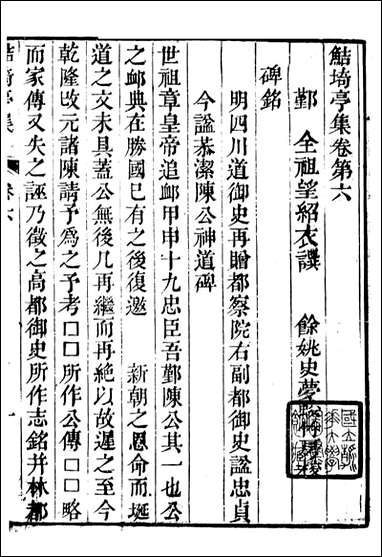 鮚埼亭集卷第六
鄞　全祖望紹衣譔　餘姚史夢
碑銘
明四川道御史再贈都察院右副都御史諡忠貞
今諡恭潔陳公神道碑
世祖章皇帝追卹甲申十九忠臣吾鄞陳公其一也公
之卹典在勝國已有之後復邀　新朝之恩命而埏
道之文未具蓋公無後凡再繼而再絕以故遲之至今
乾隆改元諸陳請予爲之予考□□所作公傳□□略
而家傳又失之誣乃徵之高都御史所作志銘幷林都
鮚埼亭集　卷六　一